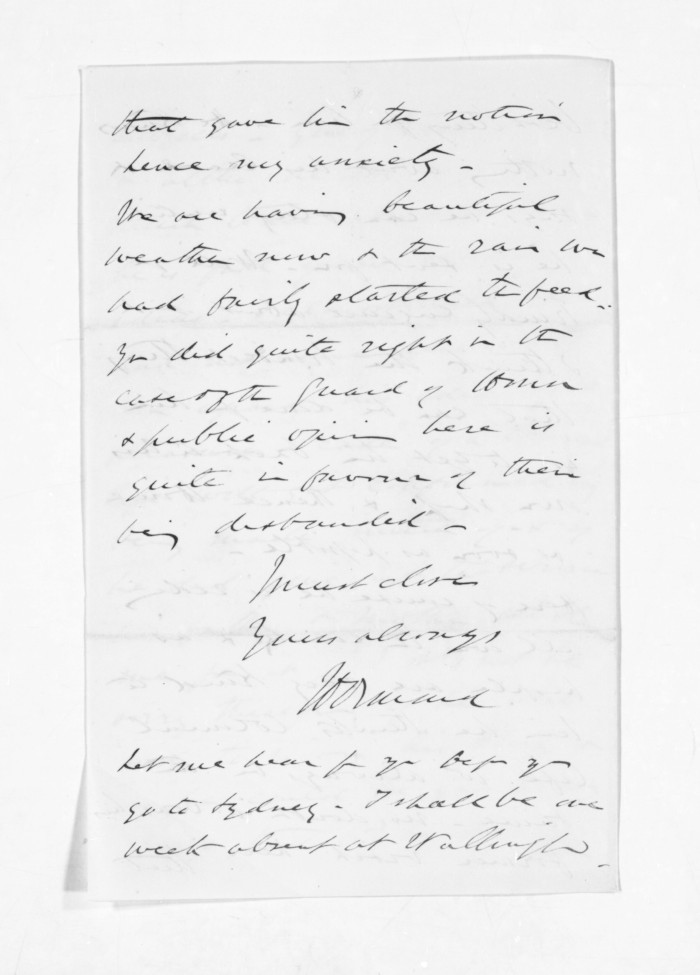 that gave him the notion
hence my anxiety -
We are having beautiful
weather now & the rain we
had fairly started the feed.
Yr did quite right in the
case of the Guard of Honor
& public opin here is
quite in favour of their
being disbanded -
I must close
Yours always
Let me hear fr yr befr yr
go to Sydney - I shall be one
week absent at Wellington -